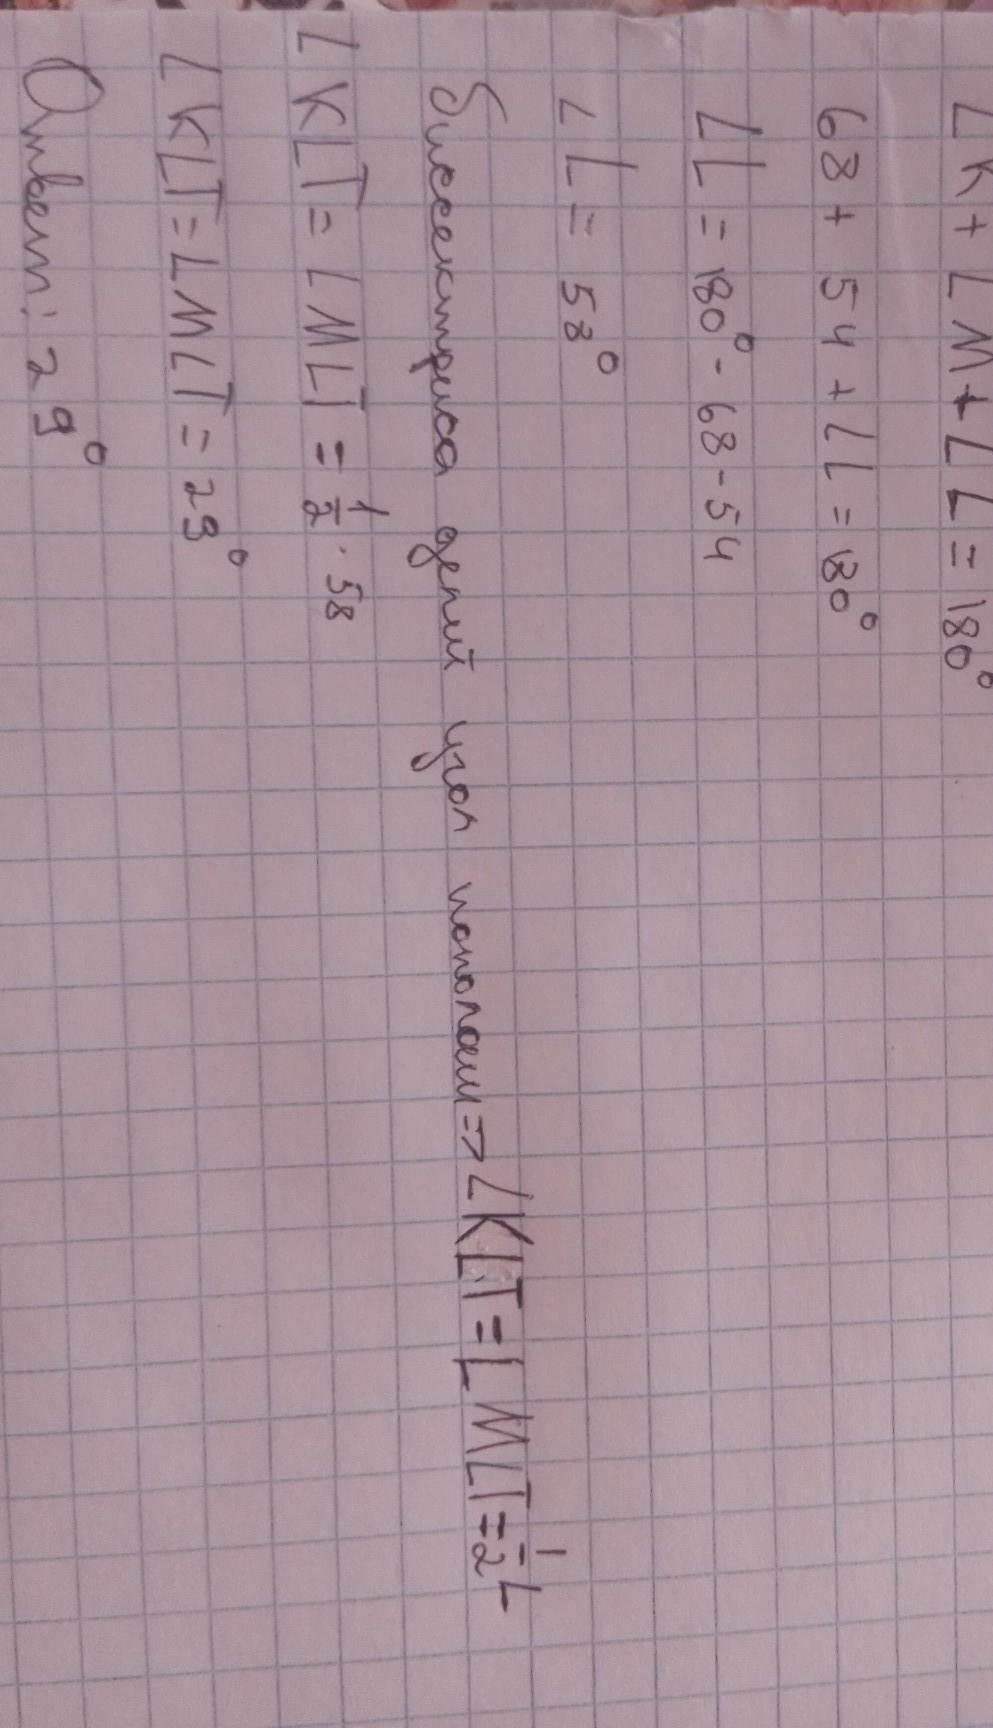 ∠K + ∠M + ∠L = 180°
68 + 54 + ∠L = 180°
∠L = 180° - 68 - 54
∠L = 58°
биссектриса делит угол пополам => ∠KLT = ∠MLT = 1/2 L
∠KLT = ∠MLT = 1/2 · 58
∠KLT = ∠MLT = 29°
Ответ: 29°